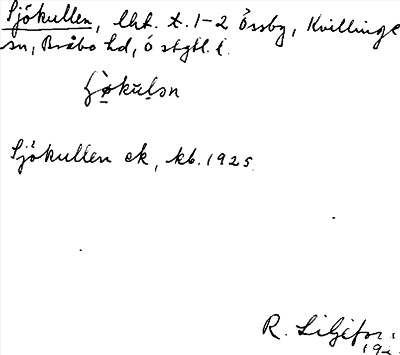 Sjökullen, lht. t. 1-2 Össby, Kvillinge
sn, Bråbo hd, Östgtl. l.
Sjökullen ek, kb. 1925.
R. Liljefor